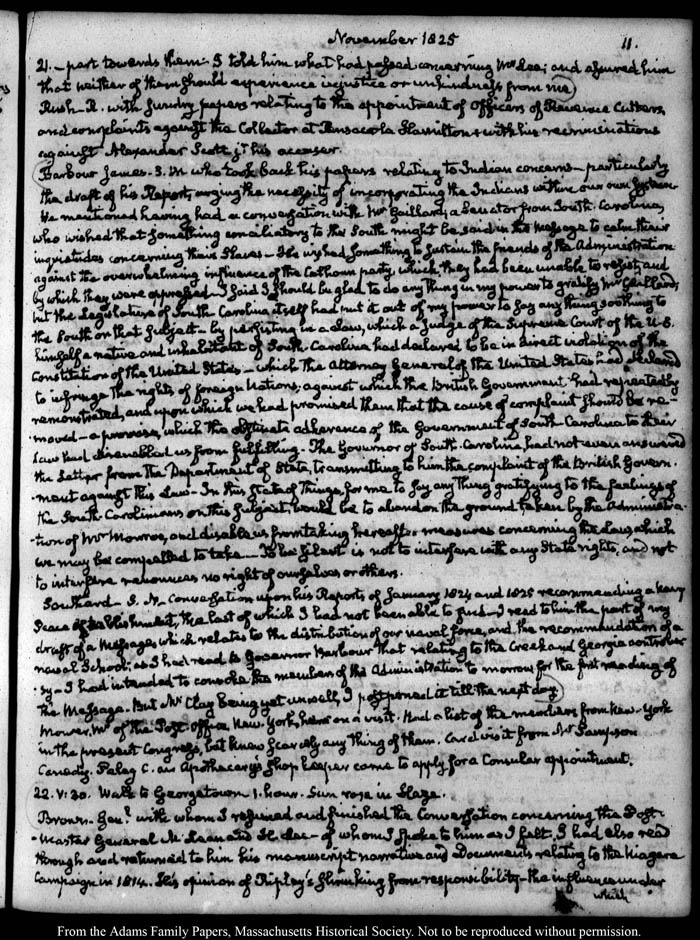 November 1825
11.
21. - part towards them. I told him what had passed concerning Mr Lee; and assured him
that neither of them should experience injustice or unkindness from me
Rush-R. with sundry papers relating to the appointment of Officers of Revenue Cutters,
and complaints against the Collector at Pensacola Hamilton with his recriminations
against Alexander Scott jr. his accuser.
Barbour James. S.W. who took back his papers relating to Indian concerns - particularly
the draft of his Report, urging the necessity of incorporating the Indians within our own System.
He mentioned having had a conversation with Mr Gaillard, a Senator from South-Carolina,
who wished that something conciliatory to the South might be said in the Message to calm their
inquietudes concerning their Slaves - He wished something to sustain the friends of the Administration
against the overwhelming influence of the Calhoun party, which they had been unable to resist, and
by which they were oppressed - I said I should be glad to do any thing in my power to gratify Mr Gaillard;
but the Legislature of South Carolina itself had put it out of my power to say any thing soothing to
the South on that subject - by persisting in a Law, which a Judge of the Supreme Court of the U.S.
himself a native and inhabitant of South-Carolina had declared to be in direct violation of the
Constitution of the United States - which the Attorney General of the United States had declared
to infringe the rights of foreign Nations; against which the British Government had repeatedly
remonstrated, and upon which we had promised them that the cause of complaint should be re-
moved - a promise, which the obstinate adherence of the Government of South Carolina to their
Law had disenabled us from fulfilling. The Governor of South-Carolina, had not even answered
the Letter from the Department of State, transmitting to him the complaint of the British Govern-
ment against this Law - In this state of things for me to say any thing gratifying to the feelings of
the South Carolinians on this subject, would be to abandon the ground taken by the Administra-
-tion of Mr Monroe, and disable us from taking hereafter measures concerning the law, which
we may be compelled to take - To be silent is not to interfere with any State rights, and not
to interfere renounces no right of ourselves or others.
Southard - S. N. Conversation upon his Reports of January 1824 and 1825 recommending a Navy
Peace Establishment, the last of which I had not been able to find - I read to him the part of my
draft of a Message, which relates to the distribution of our naval force, and the recommendation of a
naval School; as I had read to Governor Barbour that relating to the Creek and Georgia controver-
-sy - I had intended to convoke the members of the Administration to morrow for the first reading of
the Message. But Mr Clay being yet unwell, I postponed it till the next day
Mower, Mr of the Post Office New-York, here on a visit. Had a list of the members from New-York
in the present Congress, but knew scarcely any thing of them. Card visit from Mr Sampson
Peleg C. an Apothecary's shop keeper came to apply for a Consular appointment.
22. V:30. Walk to Georgetown 1. hour. Sun rose in Haze.
Brown-Genl. with whom I resumed and finished the Conversation concerning the Post-
-Master General McLean and H. Lee - of whom I spoke to him as I felt. I had also read
through and returned to him his manuscript narrative and Documents relating to the Niagara
Campaign in 1814. His opinion of Ripley's shrinking from responsibility - the influence under
which
From the Adams Family Papers, Massachusetts Historical Society. Not to be reproduced without permission.